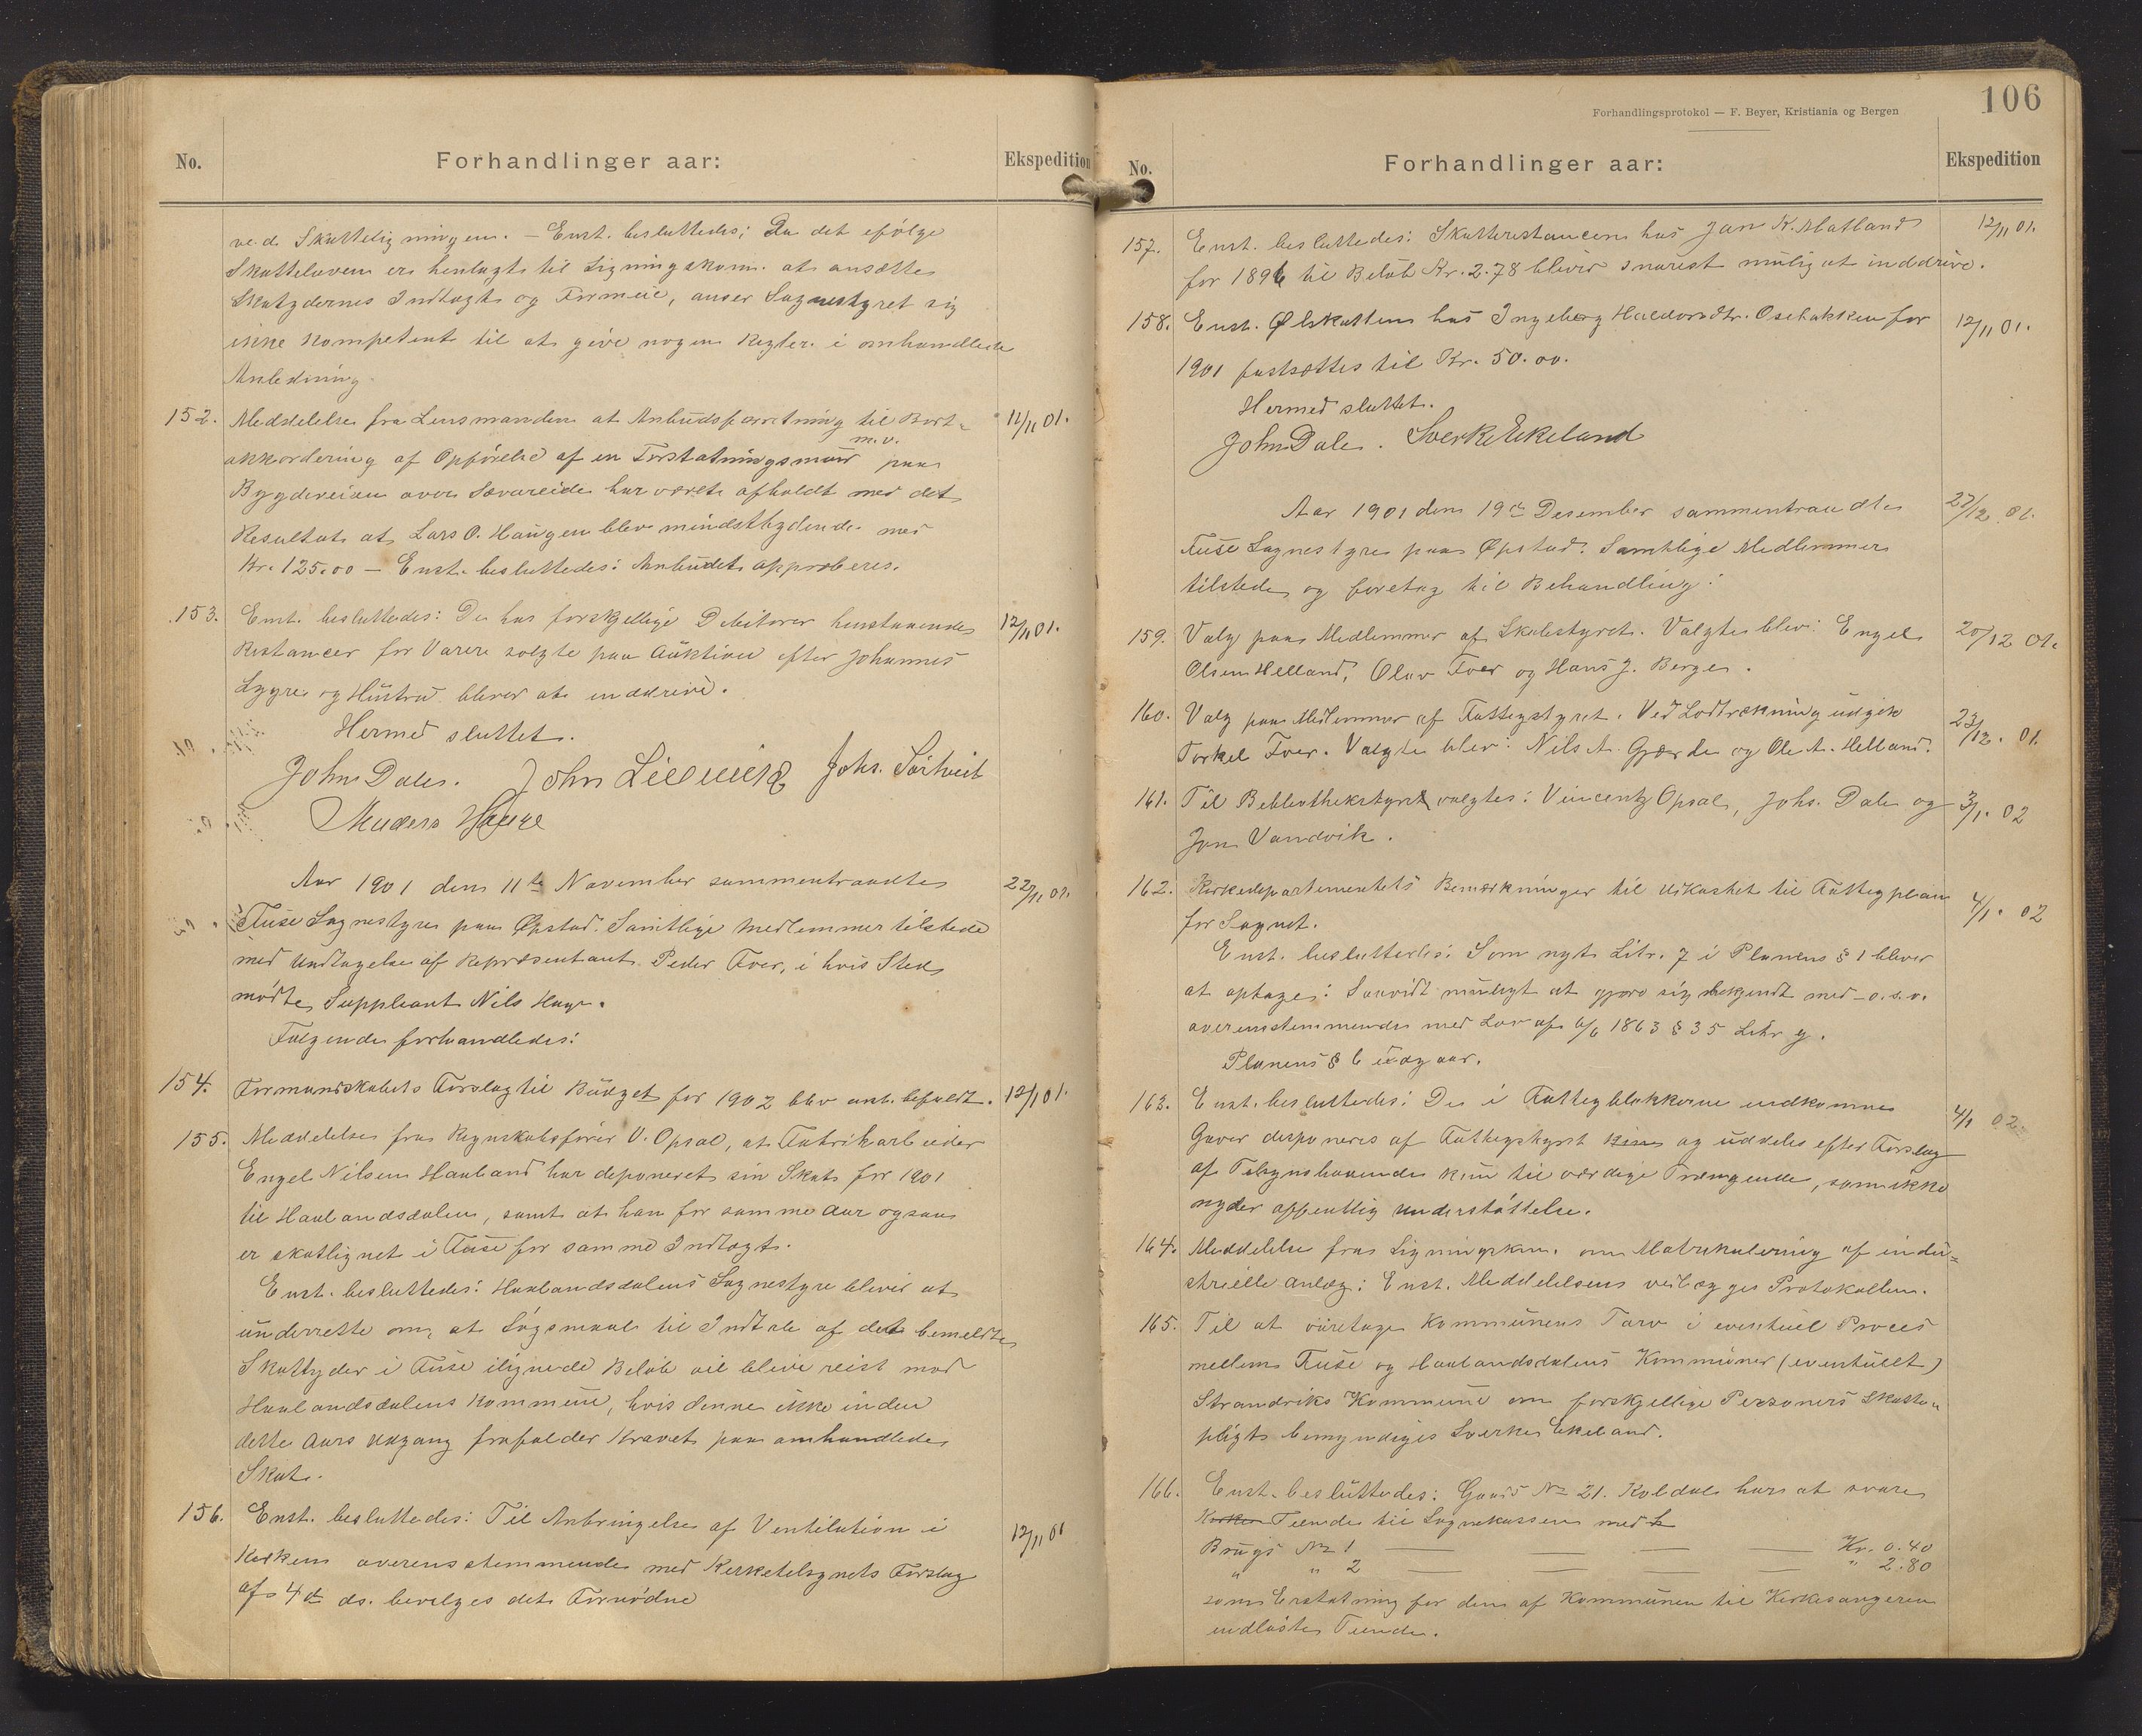 No.
Forhandlinger aar:
Ekspedition
ved Skatteligningen. – Enst. besluttedes: Da det ifølge
Skatteloven er henlagt til Ligningskom. at ansætte
Skatydernes Indtægt og Formue, anser Sognestyret sig
ikke kompetent til at give nogen Regler i omhandlede
Anledning.
152. Meddelelse fra Lensmanden at Anbudsforretning til Bort- 11/11 01.
m.v.
akkordering af Opførelse af en Forstøtningsmur paa
Bygdeveien over Sævareide har været afholdt med det
Resultat at Lars O. Haugen blev mindstbydende med
Kr. 125.00 – Enst. besluttedes: Anbudet approberes.
153. Enst. besluttedes: De hos forskjellige Debitorer henstaaende 12/11 01.
Restancer for Varer solgte paa Auktion efter Johannes
Lygre og Hustru bliver at inddrive.
Hermed sluttet.
John Dale. John Johs. Sørtveit
Anders Hauge
Aar 1901 den 11te November sammentraadte 22/11 01.
Fuse Sognestyre paa Øpstad. Samtlige Medlemmer tilstede
med Undtagelse af Repræsentant Peder Tver, i hvis Sted
mødte Suppleant Nils Hage.
Følgende forhandledes:
154. Formandskabets Forslag til Budget for 1902 blev enst. befuldt. 12/11 01.
155. Meddelelse fra Regnskabsfører V. Opsal, at Fabrikarbeider
Engel Nilsen Haaland har deponeret sin Skat for 1901
til Haalandsdalen, samt at han for samme Aar ogsaa
er skatlignet i Fuse for samme Indtægt.
Enst. besluttedes: Haalandsdalens Sognestyre bliver at
underrette om, at Søgsmaal til Indtale af det bemeldte
Skatteyder i Fuse ilignede Beløb vil blive reist mod
Haalandsdalens Kommune, hvis denne ikke inden
dette Aars Udgang frafalder Kravet paa omhandlede
Skat.
156. Enst. besluttedes: Til Anbringelse af Ventilation i 12/11 01
Kirken overensstemmende med Kirketilsynets Forslag
af 4de ds. bevilges det Fornødne
106
Forhandlingsprotokol — F. Beyer, Kristiania og Bergen
No.
Forhandlinger aar:
Ekspedition
157. Enst. besluttedes: Skatterestancen hos Jan K. Matland 12/11 01.
for 1896 til Beløb Kr. 2.78 bliver snarest mulig at inddrive.
158. Enst. Ølskatten hos Ingeborg Haldorsdtr. Osebakken for 12/11 01.
1901 fastsættes til Kr. 50.00.
Hermed sluttet.
John Dale. Sverke Ekeland
Aar 1901 den 19de Desember sammentraadte 27/12 01.
Fuse Sognestyre paa Øpstad. Samtlige Medlemmer
tilstede, og foretog til Behandling:
159. Valg paa Medlemmer af Skolestyret. Valgte blev: Engel 20/12 01.
Olsen Helland, Olav Tver og Hans J. Berge.
160. Valg paa Medlemmer af Fattigstyret. Ved Lodtrækning udgik 23/12. 01.
Torkel Tver. Valgte blev: Nils A. Gjærde og Ole A. Helland.
161. Til Bibliothekstyret valgtes: Vincentz Opsal, Johs. Dale og 3/1. 02
Jon Vandvik.
162. Kirkedepartementets Bemærkninger til Udkastet til Fattigplan 4/1. 02
for Sognet.
Enst. besluttedes: Som nyt Litr. 7 i Planens § 1 bliver
at optage: Saavidt muligt at gjøre sig bekjendt med – o.s.v.
overensstemmende med Lov af 6/6 1863 § 35 Litr g.
Planens § 6 udgaar.
163. Enst. besluttedes: De i Fattigblokkerne indkomne 4/1 02.
Gaver disponeres af Fattigstyret og uddeles efter Forslag
af Tilsynshavende kun til værdige Trængende, som ikke
nyder offentlig Understøttelse.
164. Meddelelse fra Ligningskom. om Matrikulering af indu-
strielle Anlæg: Enst. Meddelelsen vedlægges Protokollen.
165. Til at varetage Kommunens Tarv i eventuel Proces
mellem Fuse og Haalandsdalens Kommuner (eventuelt)
Strandviks Kommune om forskjellige Personers Skatte-
pligt bemyndiges Sverke Ekeland.
166. Enst. besluttedes: Gaards No 21. Koldal har at svare
Tiende til Sognekassen med
Brugs No 1 — — — — Kr. 0.40
" " 2 — — — — " 2.80
som Erstatning for den af Kommunen til Kirkesangeren
indløste Tiende.